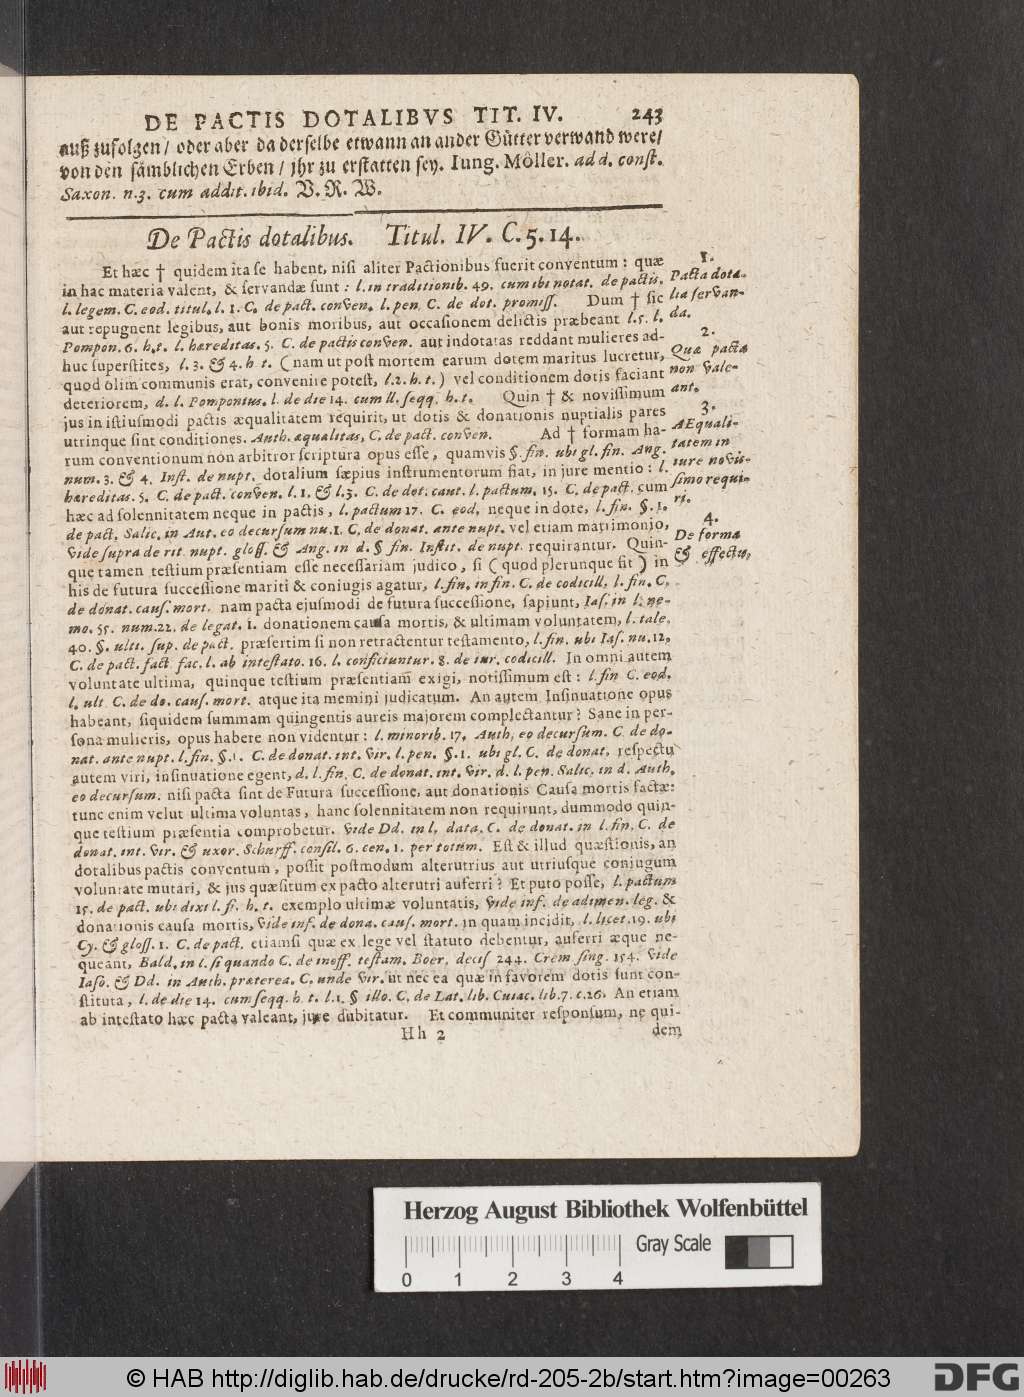 DE PACTIS DOTALIBVS TIT. IV. 243
auß zufolgen / oder aber da derselbe etwann an ander Gütter verwand were /
von den sämblichen Erben / jhr zu erstatten sey. Iung. Möller. ad d. const.
Saxon. n.3. cum addit. ibid. V. R. W.
De Pactis dotalibus. Titul. IV. C. 5. 14.
Et hæc † quidem ita se habent, nisi aliter Pactionibus fuerit conventum : quæ
in hac materia valent, & servandæ sunt : l. in traditionib. 49. cum ibi notat. de pactis,
l. legem. C. eod. titul. l. 1. C. de pact. conven. l. pen. C. de dot. promiss. Dum † sic
aut repugnent legibus, aut bonis moribus, aut occasionem delictis præbeant l. 5. l.
Pompon. 6. h. t. l. hæreditas. 5. C. de pactis conven. aut indotatas reddant mulieres ad-
huc superstites, l. 3. & 4. h t. (nam ut post mortem earum dotem maritus lucretur,
quod olim communis erat, convenire potest, l. 2. h. t.) vel conditionem dotis faciant
deteriorem, d. l. Pomponius. l. de die 14. cum ll. seqq. h. t. Quin † & novissimum
jus in istiusmodi pactis æqualitatem requirit, ut dotis & donationis nuptialis pares
utrinque sint conditiones. Auth. æqualitas, C. de pact. conven. Ad † formam ha-
rum conventionum non arbitror scriptura opus esse, quamvis §. fin. ubi gl. fin. Ang.
num. 3. & 4. Inst. de nupt. dotalium sæpius instrumentorum fiat, in jure mentio : l.
hæreditas. 5. C. de pact. conven. l. 1. & l. 3. C. de dot. caut. l. pactum. 15. C. de pact. cum
hæc ad solennitatem neque in pactis, l. pactum 17. C. eod. neque in dote, l. fin. §. 1.
de pact. Salic. in Aut. eo decursum nu. 1. C. de donat. ante nupt. vel etiam matrimonio,
vide supra de rit. nupt. gloss. & Ang. in d. § fin. Instit. de nupt. requirantur. Quin-
que tamen testium præsentiam esse necessariam judico, si (quod plerunque fit) in
his de futura successione mariti & coniugis agatur, l. fin. in fin. C. de codicill. l. fin. C.
de donat. caus. mort. nam pacta ejusmodi de futura successione, sapiunt, Ias. in l. ne-
mo. 55. num. 22. de legat. 1. donationem causa mortis, & ultimam voluntatem, l. tale.
40. §. ulti. sup. de pact. præsertim si non retractentur testamento, l. fin. ubi Ias. nu. 12.
C. de pact. fact fac. l. ab intestato. 16. l. conficiuntur. 8. de iur. codicill. In omni autem
voluntate ultima, quinque testium præsentiam exigi, notissimum est : l. fin C. eod.
l. ult C. de do. caus. mort. atque ita memini judicatum. An autem Insinuatione opus
habeant, siquidem summam quingentis aureis majorem complectantur ? Sane in per-
sona mulieris, opus habere non videntur : l. minorib. 17. Auth. eo decursum. C. de do-
nat. ante nupt. l. fin. §. 1. C. de donat. int. vir. l. pen. §. 1. ubi gl. C. de donat. respectu
autem viri, insinuatione egent, d. l. fin. C. de donat. int. vir. d. l. pen. Salic. in d. Auth.
eo decursum. nisi pacta sint de Futura successione, aut donationis Causa mortis factæ :
tunc enim velut ultima voluntas, hanc solennitatem non requirunt, dummodo quin-
que testium præsentia comprobetur. vide Dd. in l. data. C. de donat. in l. fin. C. de
donat. int. vir. & uxor. Schurff. consil. 6. cen. 1. per totum. Est & illud quæstionis, an
dotalibus pactis conventum, possit postmodum alterutrius aut utriusque conjugum
voluntate mutari, & jus quæsitum ex pacto alterutri auferri ? Et puto posse, l. pactum
15. de pact. ubi dixi l. fi. h. t. exemplo ultimæ voluntatis, vide inf. de adimen. leg. &
donationis causa mortis, vide inf. de dona. caus. mort. in quam incidit, l. licet. 19. ubi
Cy. & gloss. 1. C. de pact. etiamsi quæ ex lege vel statuto debentur, auferri æque ne-
queant, Bald. in l. si quando C. de inoff. testam. Boer. decis 244. Crem sing. 154. vide
Iaso. & Dd. in Auth. præterea. C. unde vir. ut nec ea quæ in favorem dotis sunt con-
stituta, l. de die 14. cum seqq. h. t. l. 1. § illo. C. de Lat. lib. Cuiac. lib. 7. c. 26. An etiam
ab intestato hæc pacta valeant, jure dubitatur. Et communiter responsum, ne qui-
Hh 2 dem
1.
Pacta dota-
lia servan-
da.
2.
Quæ pacta
non vale-
ant.
3.
AEquali-
tatem in
iure novis-
simo requi-
ri.
4.
De forma
& effectu.
Herzog August Bibliothek Wolfenbüttel
Gray Scale
0 1 2 3 4
© HAB http://diglib.hab.de/drucke/rd-205-2b/start.htm?image=00263
DFG